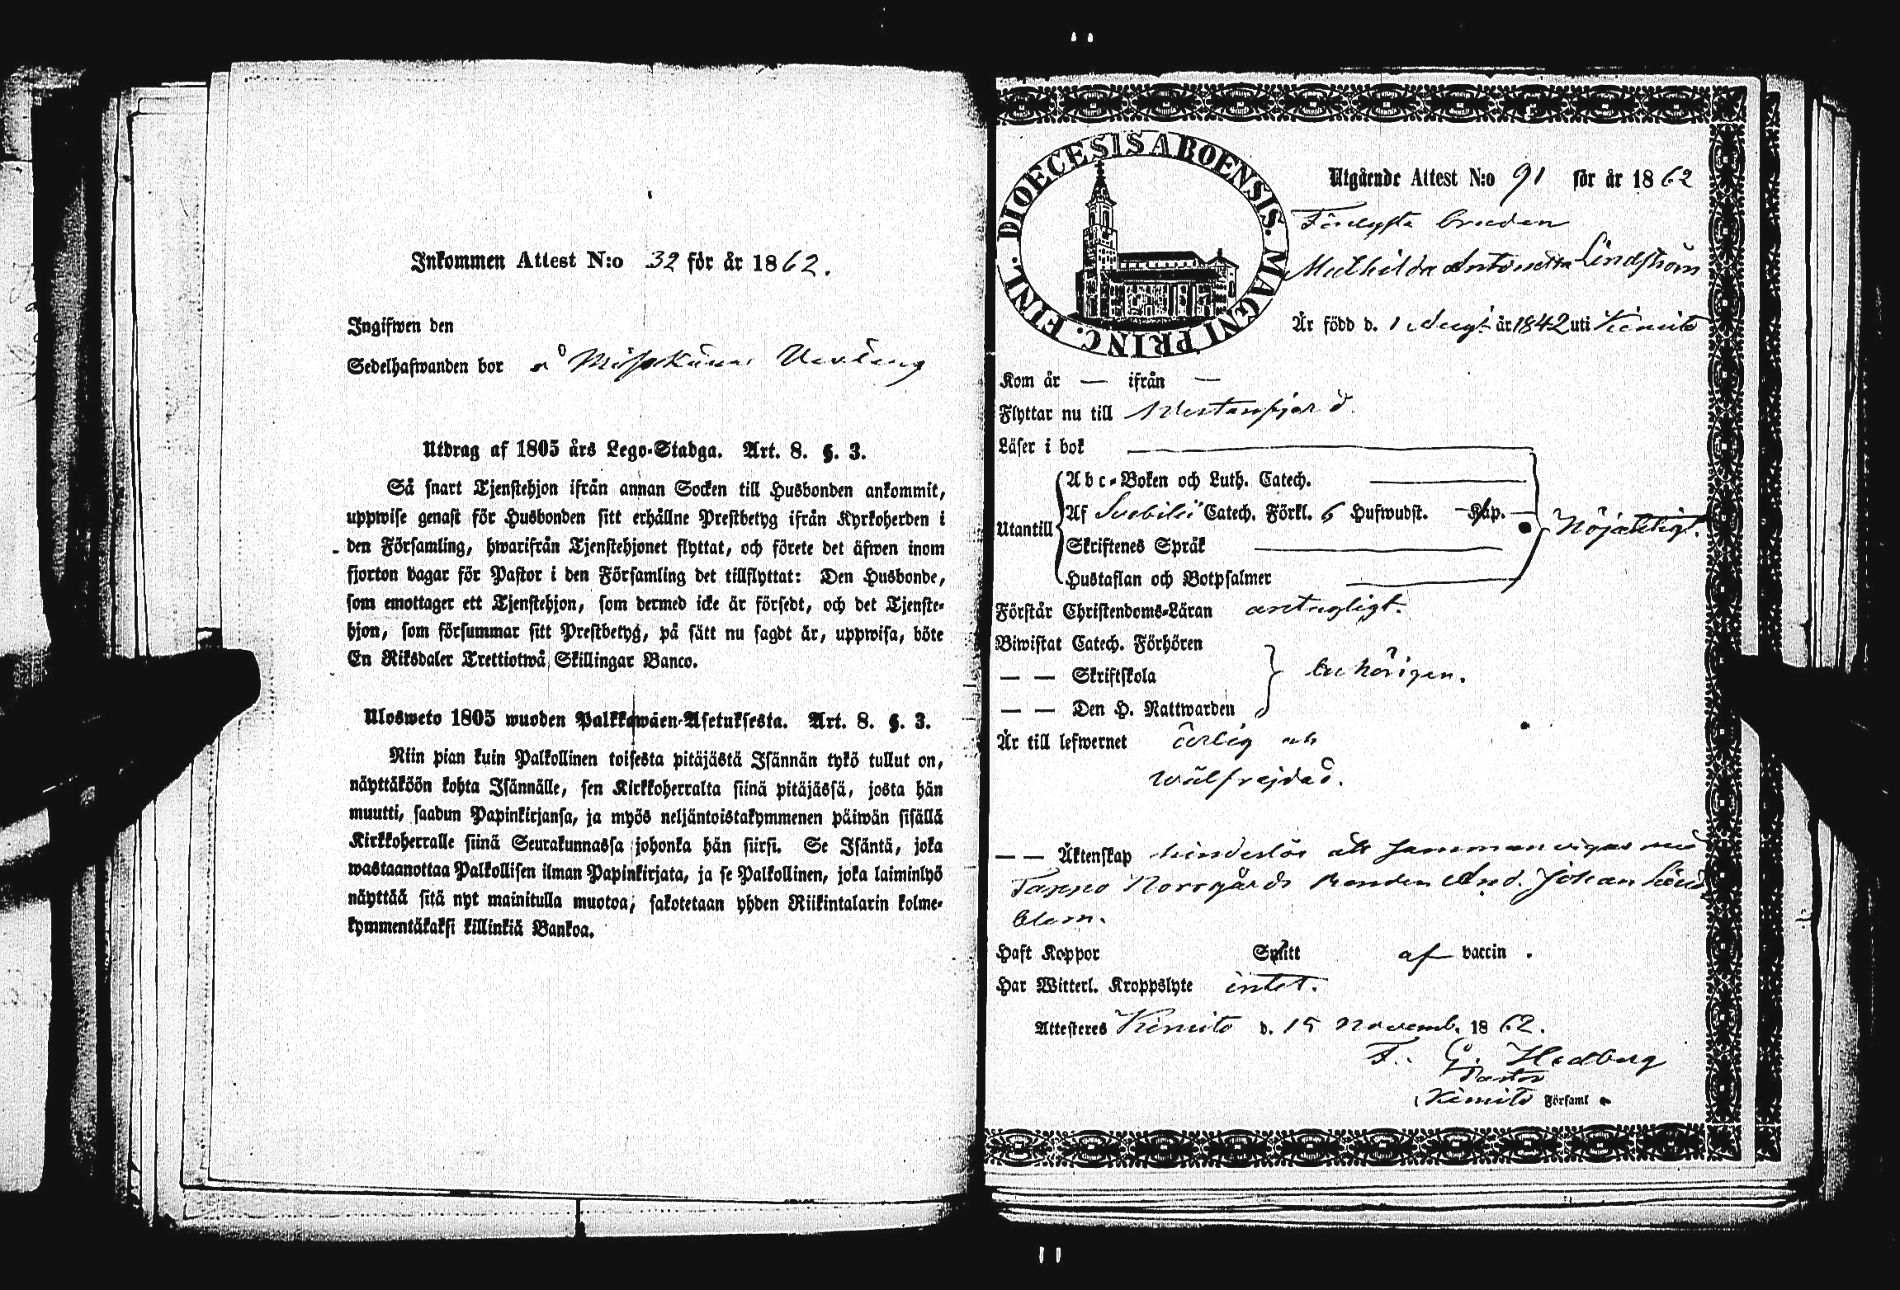 Inkommen Attest N:o 32 för år 1862.
Ingifwen den
Sedelhafwanden bor å
Utdrag af 1805 års Lego-Stadga. Art. 8. §. 3.
Så snart Tjenstehjon ifrån annan Socken till Husbonden ankommit,
uppwise genast för Husbonden sitt erhållne Prestbetyg ifrån Kyrkoherden i
den Församling, hwarifrån Tjenstehjonet flyttat, och förete det äfwen inom
fjorton dagar för Pastor i den Församling det tillflyttat: Den Husbonde,
som emottager ett Tjenstehjon, som dermed icke är försedt, och det Tjenste-
hjon, som försummar sitt Prestbetyg, på sätt nu sagdt är, uppwisa, böte
En Riksdaler Trettiotwå Skillingar Banco.
Ulosweto 1805 wuoden Palkkawäen-Asetuksesta. Art. 8. §. 3.
Niin pian kuin Palkollinen toisesta pitäjästä Isännän tykö tullut on,
näyttäköön kohta Isännälle, sen Kirkkoherralta siinä pitäjässä, josta hän
muutti, saadun Papinkirjansa, ja myös neljäntoistakymmenen päiwän sisällä
Kirkkoherralle siinä Seurakunnassa johonka hän siirsi. Se Isäntä, joka
wastaanottaa Palkollisen ilman Papinkirjata, ja se Palkollinen, joka laiminlyö
näyttää sitä nyt mainitulla muotoa, sakotetaan yhden Riikintalarin kolme-
kymmentäkaksi killinkiä Bankoa.
DIOECESIS ABOENSIS. MAGNI PRINC. FINL.
Utgående Attest N:o 91 för år 1862
Förlofta Bruden
Mathilda Antonetta Lindström
Är född d. 1 Aug. år 1842 uti Kimito
Kom år — ifrån —
Flyttar nu till Westanfjärd.
Läser i bok
Utantill
Abc-Boken och Luth. Catech.
Af Svebilii Catech. Förkl. 6 Hufwudst. Kap.
Skriftenes Språk
Hustaflan och Botpsalmer
Nöjaktligt.
Förstår Christendoms-Läran antagligt.
Biwistat Catech. Förhören
— — Skriftskola
— — Den H. Nattwarden
behörigen.
Är till lefwernet ärlig och
wälfrejdad.
— — Äktenskap hinderlös att sammanvigas med
Norrgårds Bonden And. Johan
Haft Koppor Smitt af vaccin.
Har Witterl. Kroppslyte intet.
Attesteres Kimito d. 15 Novemb. 1862.
F. G. Hedberg
Pastor
Kimito Församl.